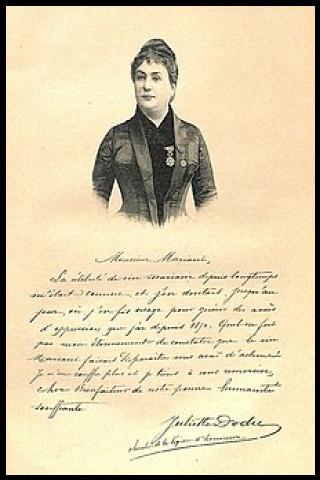 Monsieur Mariani,
La célébrité de vin Mariani depuis longtemps
m'était connue et j'en doutais jusqu'au
jour, où j'en fis usage pour guérir des accès
d'oppression que j'ai depuis 1870. Quel ne fut
pas mon étonnement de constater que le vin
Mariani faisait disparaître mes accès
Je n'en souffre plus et je tiens à vous remercier
cher bienfaiteur de notre pauvre humanité
souffrante
Juliette Dodu
chevalier de la légion d'honneur